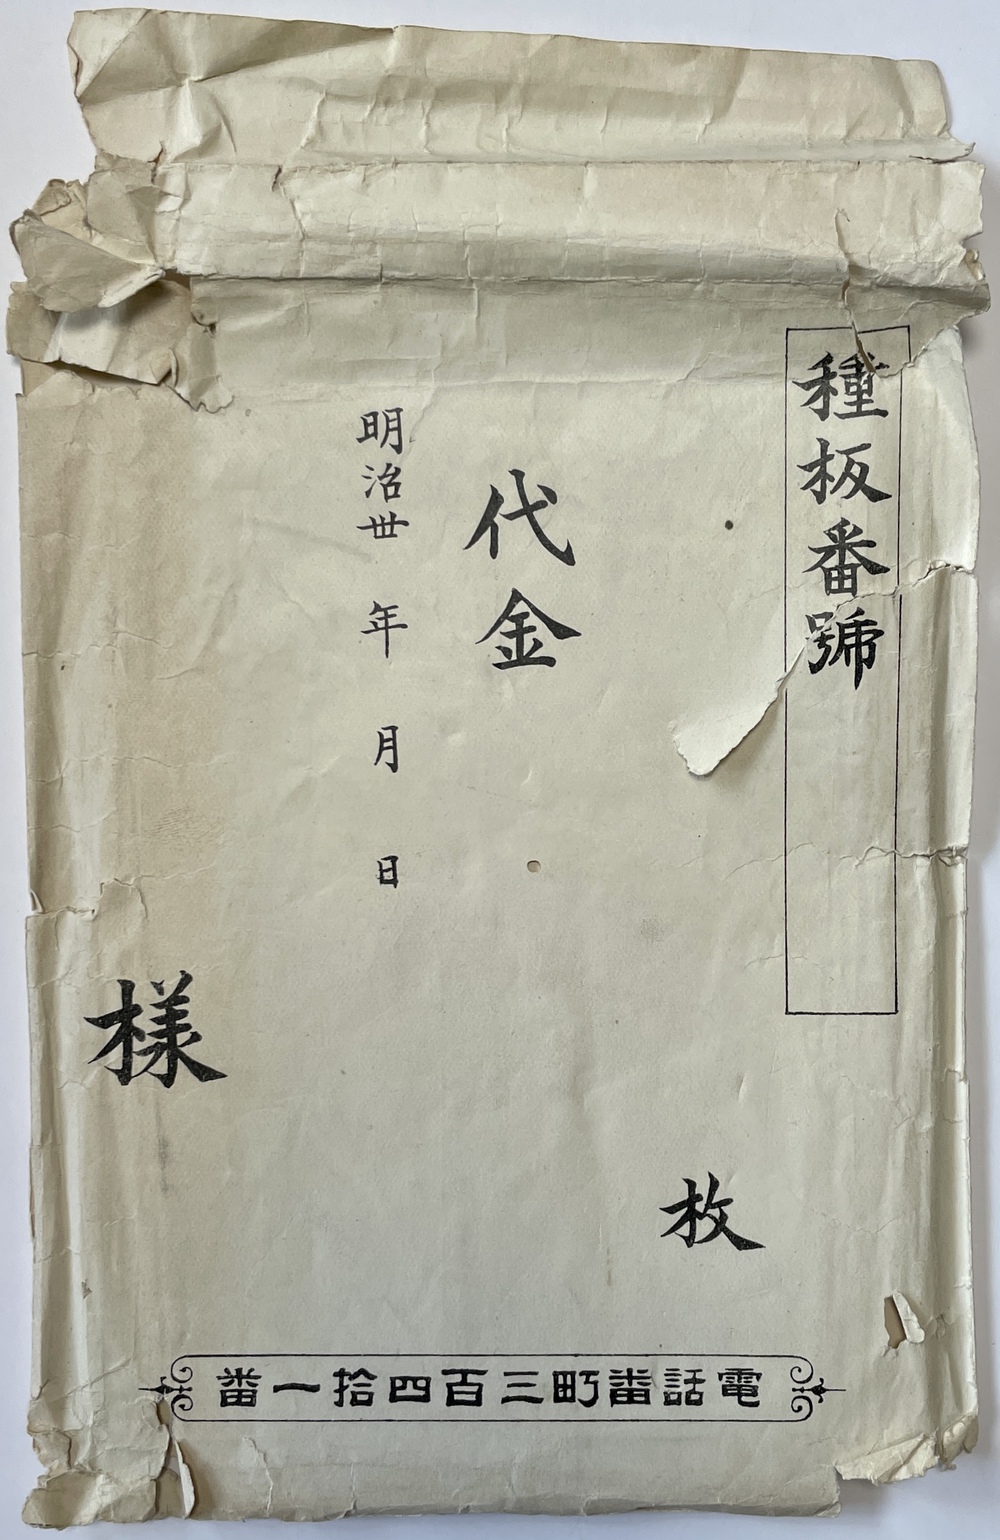 種板番號
枚
代金
明治丗 年 月 日
樣
電話番町三百四拾一番